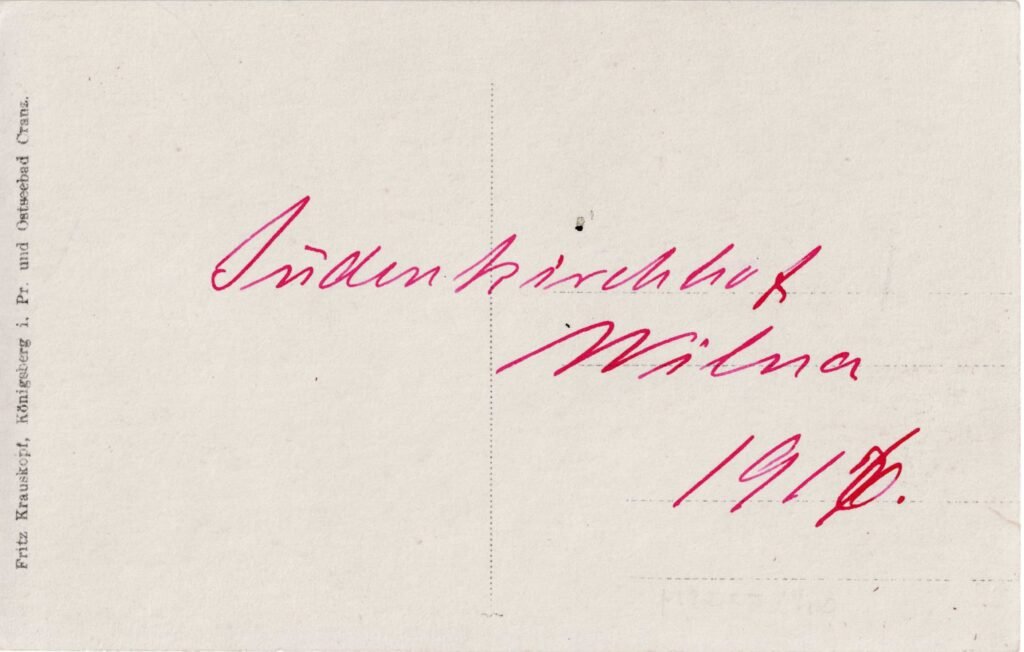 Fritz Krauskopf, Königsberg i. Pr. und Ostseebad Cranz.
Judenkirchhof
Wilna
191